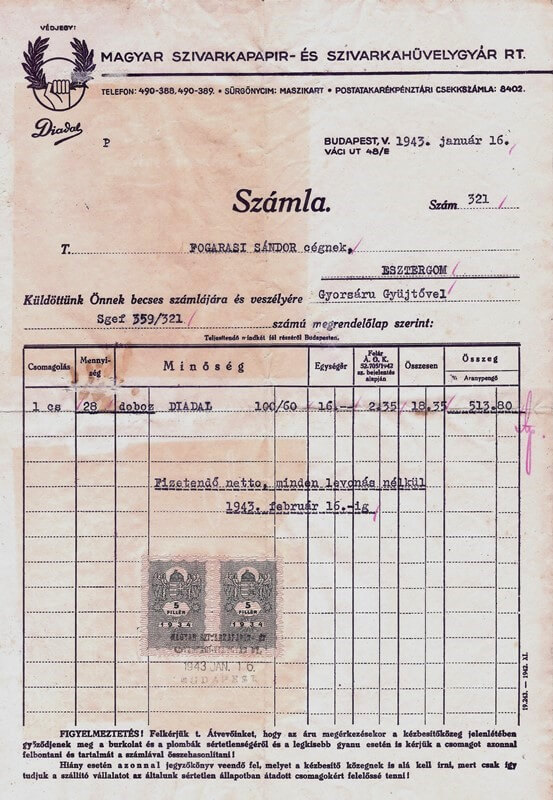 VÉDJEGY:
MAGYAR SZIVARKAPAPIR- ÉS SZIVARKAHÜVELYGYÁR RT.
TELEFON: 490-388, 490-389. • SÜRGÖNYCIM: MASZIKART • POSTATAKARÉKPÉNZTÁRI CSEKKSZÁMLA: 8402.
Diadal
P
BUDAPEST, V. 1943. január 16.
VÁCI UT 48/E
Számla.
Szám 321
T. FOGARASI SÁNDOR cégnek,
ESZTERGOM
Küldöttünk Önnek becses számlájára és veszélyére Gyorsáru Gyüjtővel
Sgef 359/321 számú megrendelőlap szerint:
Teljesítendő mindkét fél részéről Budapesten.
Csomagolás Mennyiség Minőség Egységár Felár A. O. K. 52.705/1942 sz. bejelentés alapján Összesen Összeg
Aranypengő
1 cs 28 doboz DIADAL 100/60 16.-- 2.35 18.35 513.80
Fizetendő netto, minden levonás nélkül
1943. február 16.-ig
5 FILLÉR 1934 5 FILLÉR 1934
MAGYAR SZIVARKAPAPIR- ÉS
1943 JAN. 16.
BUDAPEST
19.243. — 1942. XI.
FIGYELMEZTETÉS! Felkérjük t. Átvevőinket, hogy az áru megérkezésekor a kézbesítőközeg jelenlétében
győződjenek meg a burkolat és a plombák sértetlenségéről és a legkisebb gyanu esetén is kérjük a csomagot azonnal
felbontani és tartalmát a számlával összehasonlítani!
Hiány esetén azonnal jegyzőkönyv veendő fel, melyet a kézbesítő közegnek is alá kell írni, mert csak így
tudjuk a szállító vállalatot az általunk sértetlen állapotban átadott csomagokért felelőssé tenni!